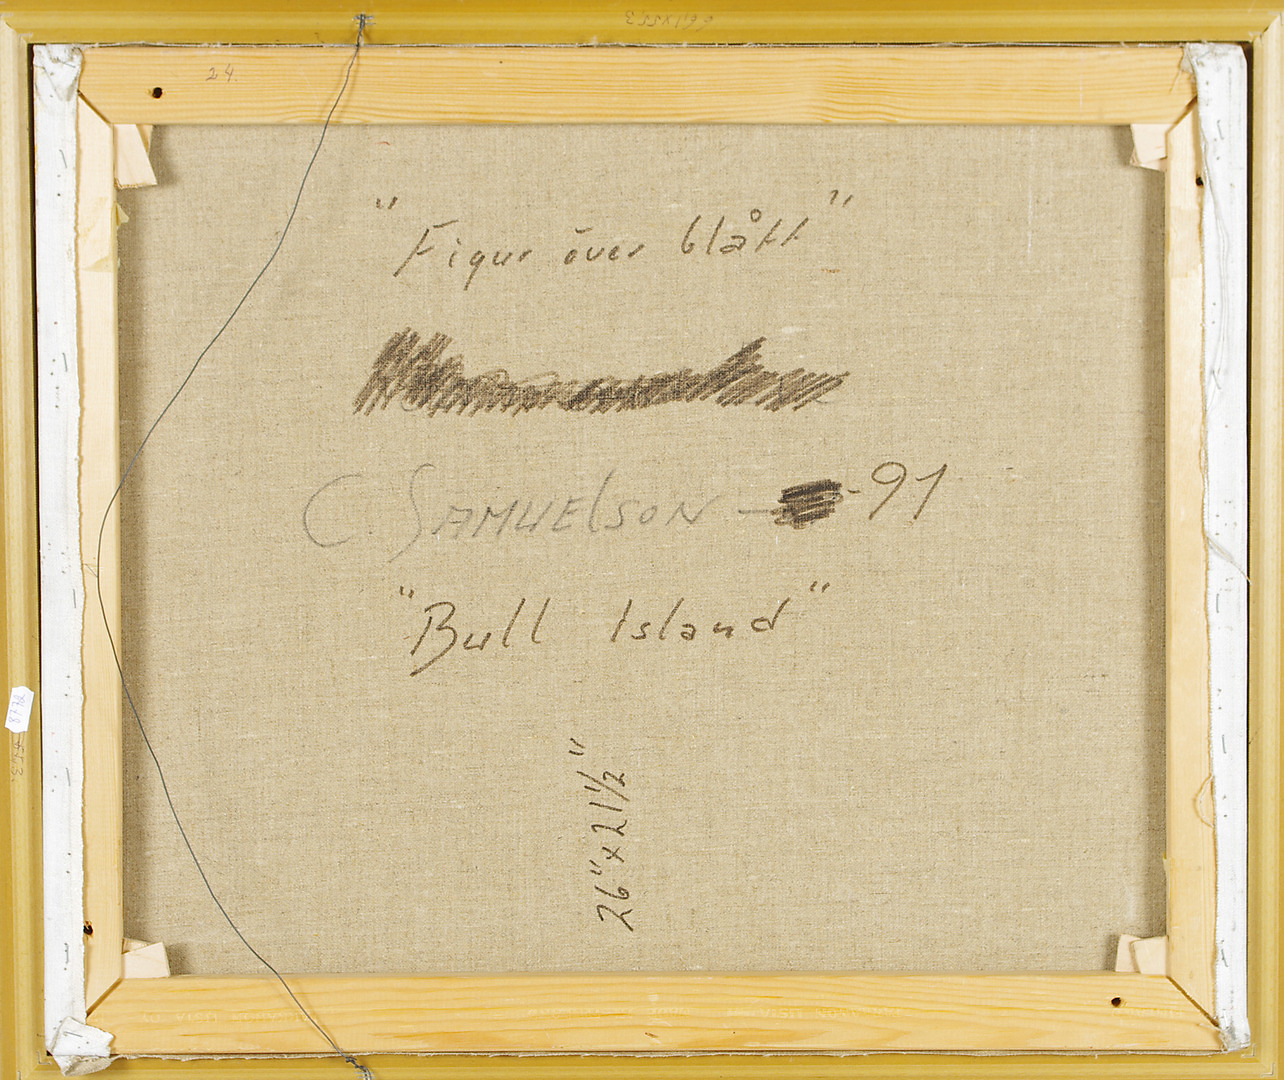 24.
"Figur över blått"
C. SAMUELSON - -91
"Bull Island"
26" x 21 1/2"